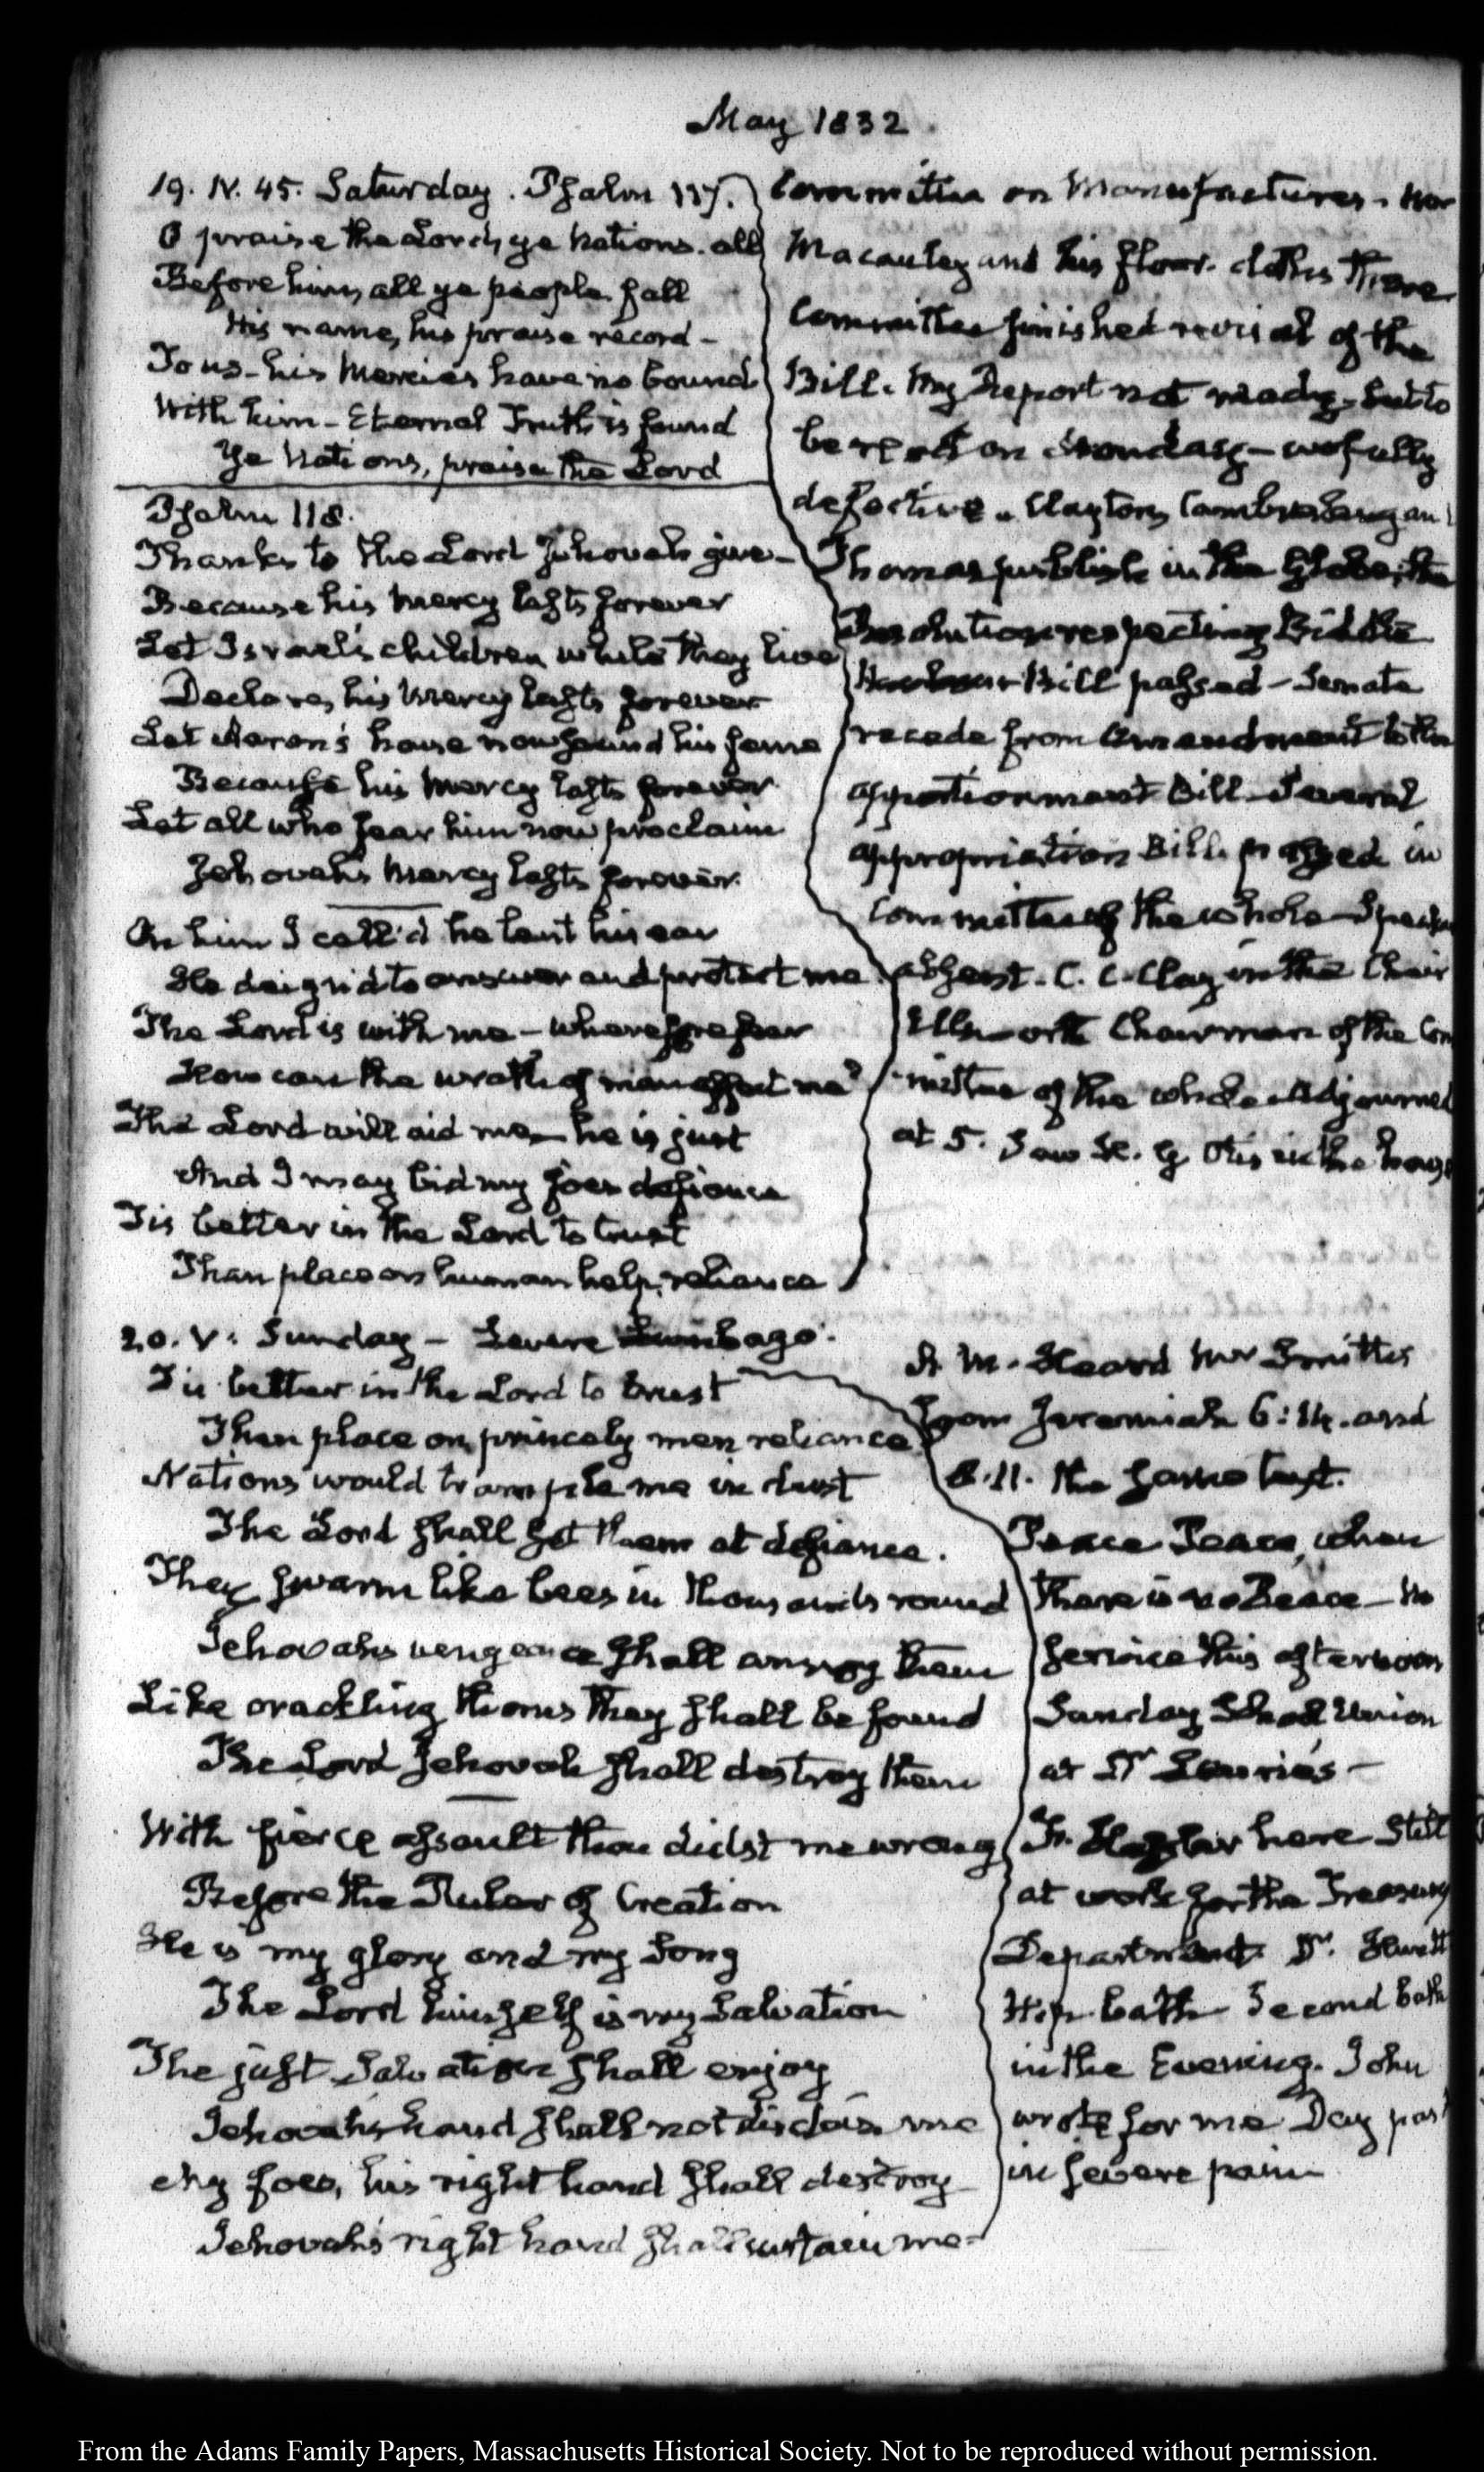 May 1832.
19. IV. 45. Saturday. Psalm 117.
O praise the Lord, ye Nations. all
Before him, all ye people fall
His name, his praise record -
To us - his Mercies have no bound
With him - Eternal Truth is found
Ye Nations, praise the Lord
Psalm 118.
Thanks to the Lord Jehovah give -
Because his mercy lasts forever
Let Israel's children while they live
Declare, his Mercy lasts forever
Let Aaron's house now sound his fame
Because his Mercy lasts forever
Let all who fear him now proclaim
Jehovah's Mercy lasts forever.
On him I call'd he lent his ear
He deign'd to answer and protect me
The Lord is with me - wherefore fear
How can the wrath of man affect me?
The Lord will aid me - he is just
And I may bid my foes defiance
Tis better in the Lord to trust
Than place on human help, reliance
Committee on Manufactures. Mr
Macauley and his floor-cloths there
Committee finished revisal of the
Bill. My Report not ready, but to
be read on Monday - wofully
defective. Clayton, Cambreleng an
Thomas publish in the Globe, the
Resolutions respecting Biddle
Harbour Bill passed - Senate
recede from Amendment to the
apportionment Bill - Several
appropriation Bills passed in
Committee of the whole - Speaker
absent. C. C. Clay in the Chair
Ellsworth Chairman of the Com
mittee of the whole Adjourned
at 5. Saw H. G. Otis in the house
20. V: Sunday - Severe Lumbago.
Tis better in the Lord to trust
Than place on princely men reliance
Nations would trample me in dust
The Lord shall set them at defiance.
They swarm like bees in thousands round
Jehovahs vengeance shall annoy them
Like crackling thorns they shall be found
The Lord Jehovah shall destroy them
With fierce assault thou didst me wrong
Before the Ruler of Creation
He is my glory and my Song
The Lord himself is my Salvation
The just Salvation shall enjoy
Jehovah's hand shall not disdain me
My foes, his right hand shall destroy
Jehovah's right hand shall sustain me -
A. M. Heard Mr Smith
from Jeremiah 6:14. and
8.11. the same text.
Peace Peace, when
there is no Peace - No
service this afternoon
Sunday School Union
at Dr Lauries -
Hassler here still
at work for the Treasury
Department Dr. Huntt
Hip. bath Second bath
in the Evening. John
wrote for me Day past
in severe pain
From the Adams Family Papers, Massachusetts Historical Society. Not to be reproduced without permission.